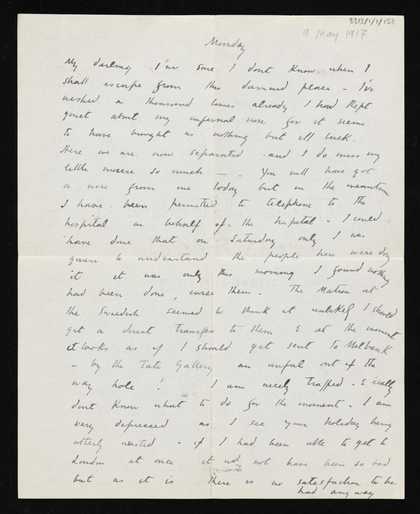 9 May 1917
Monday
My darling I'm sure I dont know when I
shall escape from this damned place - I've
wished a thousand times already I had kept
quiet about my infernal nose for it seems
to have brought us nothing but ill luck.
Here we are now separated and I do miss my
little so much - . You will have got
a wire from me today but in the meantime
I have been permitted to telephone to the
hospital on behalf of the hospital - I could
have done that on Saturday only I was
given to understand the people here were doing
it it was only this morning I found nothing
had been done, curse them. The Matron at
the Swedish seemed to think it unlikely I should
get a direct transfer to them & at the moment
it looks as if I should get sent to Millbank
- by the Tate Gallery an awful out of the
way hole! I am nicely trapped - & really
dont know what to do for the moment. I am
very depressed as I see your holiday being
utterly wasted - if I had been able to get to
London at once it not have been so bad
but as it is there is no satisfaction to be
had any way